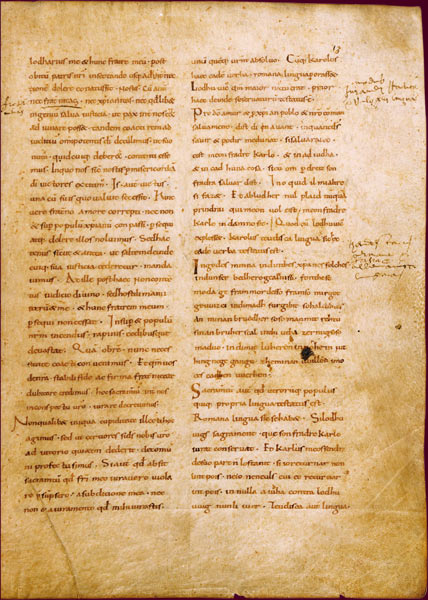 lodharius me & hunc fratre meu post
obitu patris nri insectando usq; ad inter
necione delere conatus sit nostis. Cu aut
nec fraternitas nec xpianitas nec quodlib&
ingeniu salva iusticia ut pax int nos ess&
adiuvare posset tandem coacti rem ad
iuditiu omnipotentis di detulimus ut suo
nutu quid cuiq; deberetur contenti esse
mus. In quo nos sic nostis p misericordia
di victores extitim. Is aut victus
una cu suis quo valuit secessit. Hinc
vero fraterno amore correpti nec non
& sup populu xpianu conpassi psequi
atq; delere illos noluimus. Sed hac
tenus sicut & antea ut salte deinde
cuiq; sua iusticia cederetur manda
vimus. At ille post haec non conten
tus iuditio divino sed hostili manu
iteru & me & hunc fratrem meu
psequi non cessat. Insup & populu
nrm incendiis rapinis cedibusq;
devastat. Qua obre nunc neces
sitate coacti convenim. Et qm vos
de nra stabili fide ac firma fraternitate
dubitare credimus hoc sacramtu int nos
in conspectu vro iurare decrevimus.
Non qualib& iniqua cupiditate illecti hoc
agimus sed ut certiores si ds nobis vro
adiutorio quietem dederit de comu
ni profectu simus. Si aut qd absit
sacramtu qd fri meo iuravero viola
re psupsero a subditione mea nec
non & a iuramento qd mihi iurastis
13
unu queq; vrm absolvo. Cuq; karolus
haec eade verba romana lingua porasset.
Lodhuvic qm maior natu erat prior
haec deinde se servaturu testatus e.
Pro do amur & pxpian poblo & nro comun
salvament dist di in avant inquant ds
savir & podir me dunat si salvarai eo
cist meon fradre karlo & in aiudha
& in cad huna cosa sicu om p dreit son
fradra salvar dist. In o quid il mi altre
si faz&. Et ab ludher nul plaid nuqua
prindrai qui meon vol cist meon fradre
karle in damno sit. Quod cu lodhuvic
explesset karolus teudisca lingua sic hec
eade verba testatus est.
In godes minna ind in thes xpanes folches
ind unser bedhero gealtnissi fon thesemo
moda ge frammordesso fram so mir got
gewizci indi madh furgibit so hald ih tes
an minan bruodher soso man mit rehtu
sinan bruher scal in thi utha zer mig so so
maduo indi mit luheren in nohein iut
hing nege gango zhe minan willon imo
ces cadhen werhen
Sacramtu aut qd utroruq; populus
quiq; propria lingua testatus est
Romana lingua sic se habet. Si lodhu
uigs sagrament que son fradre karlo
iurat conservat. Et karlus meos sendra
de suo part n lostanit si io returnar non
lint pois ne io neneuls cui eo returnar
int pois in nulla aiudha contra lodhu
uuig nunli iuer. Teudisca aut lingua.